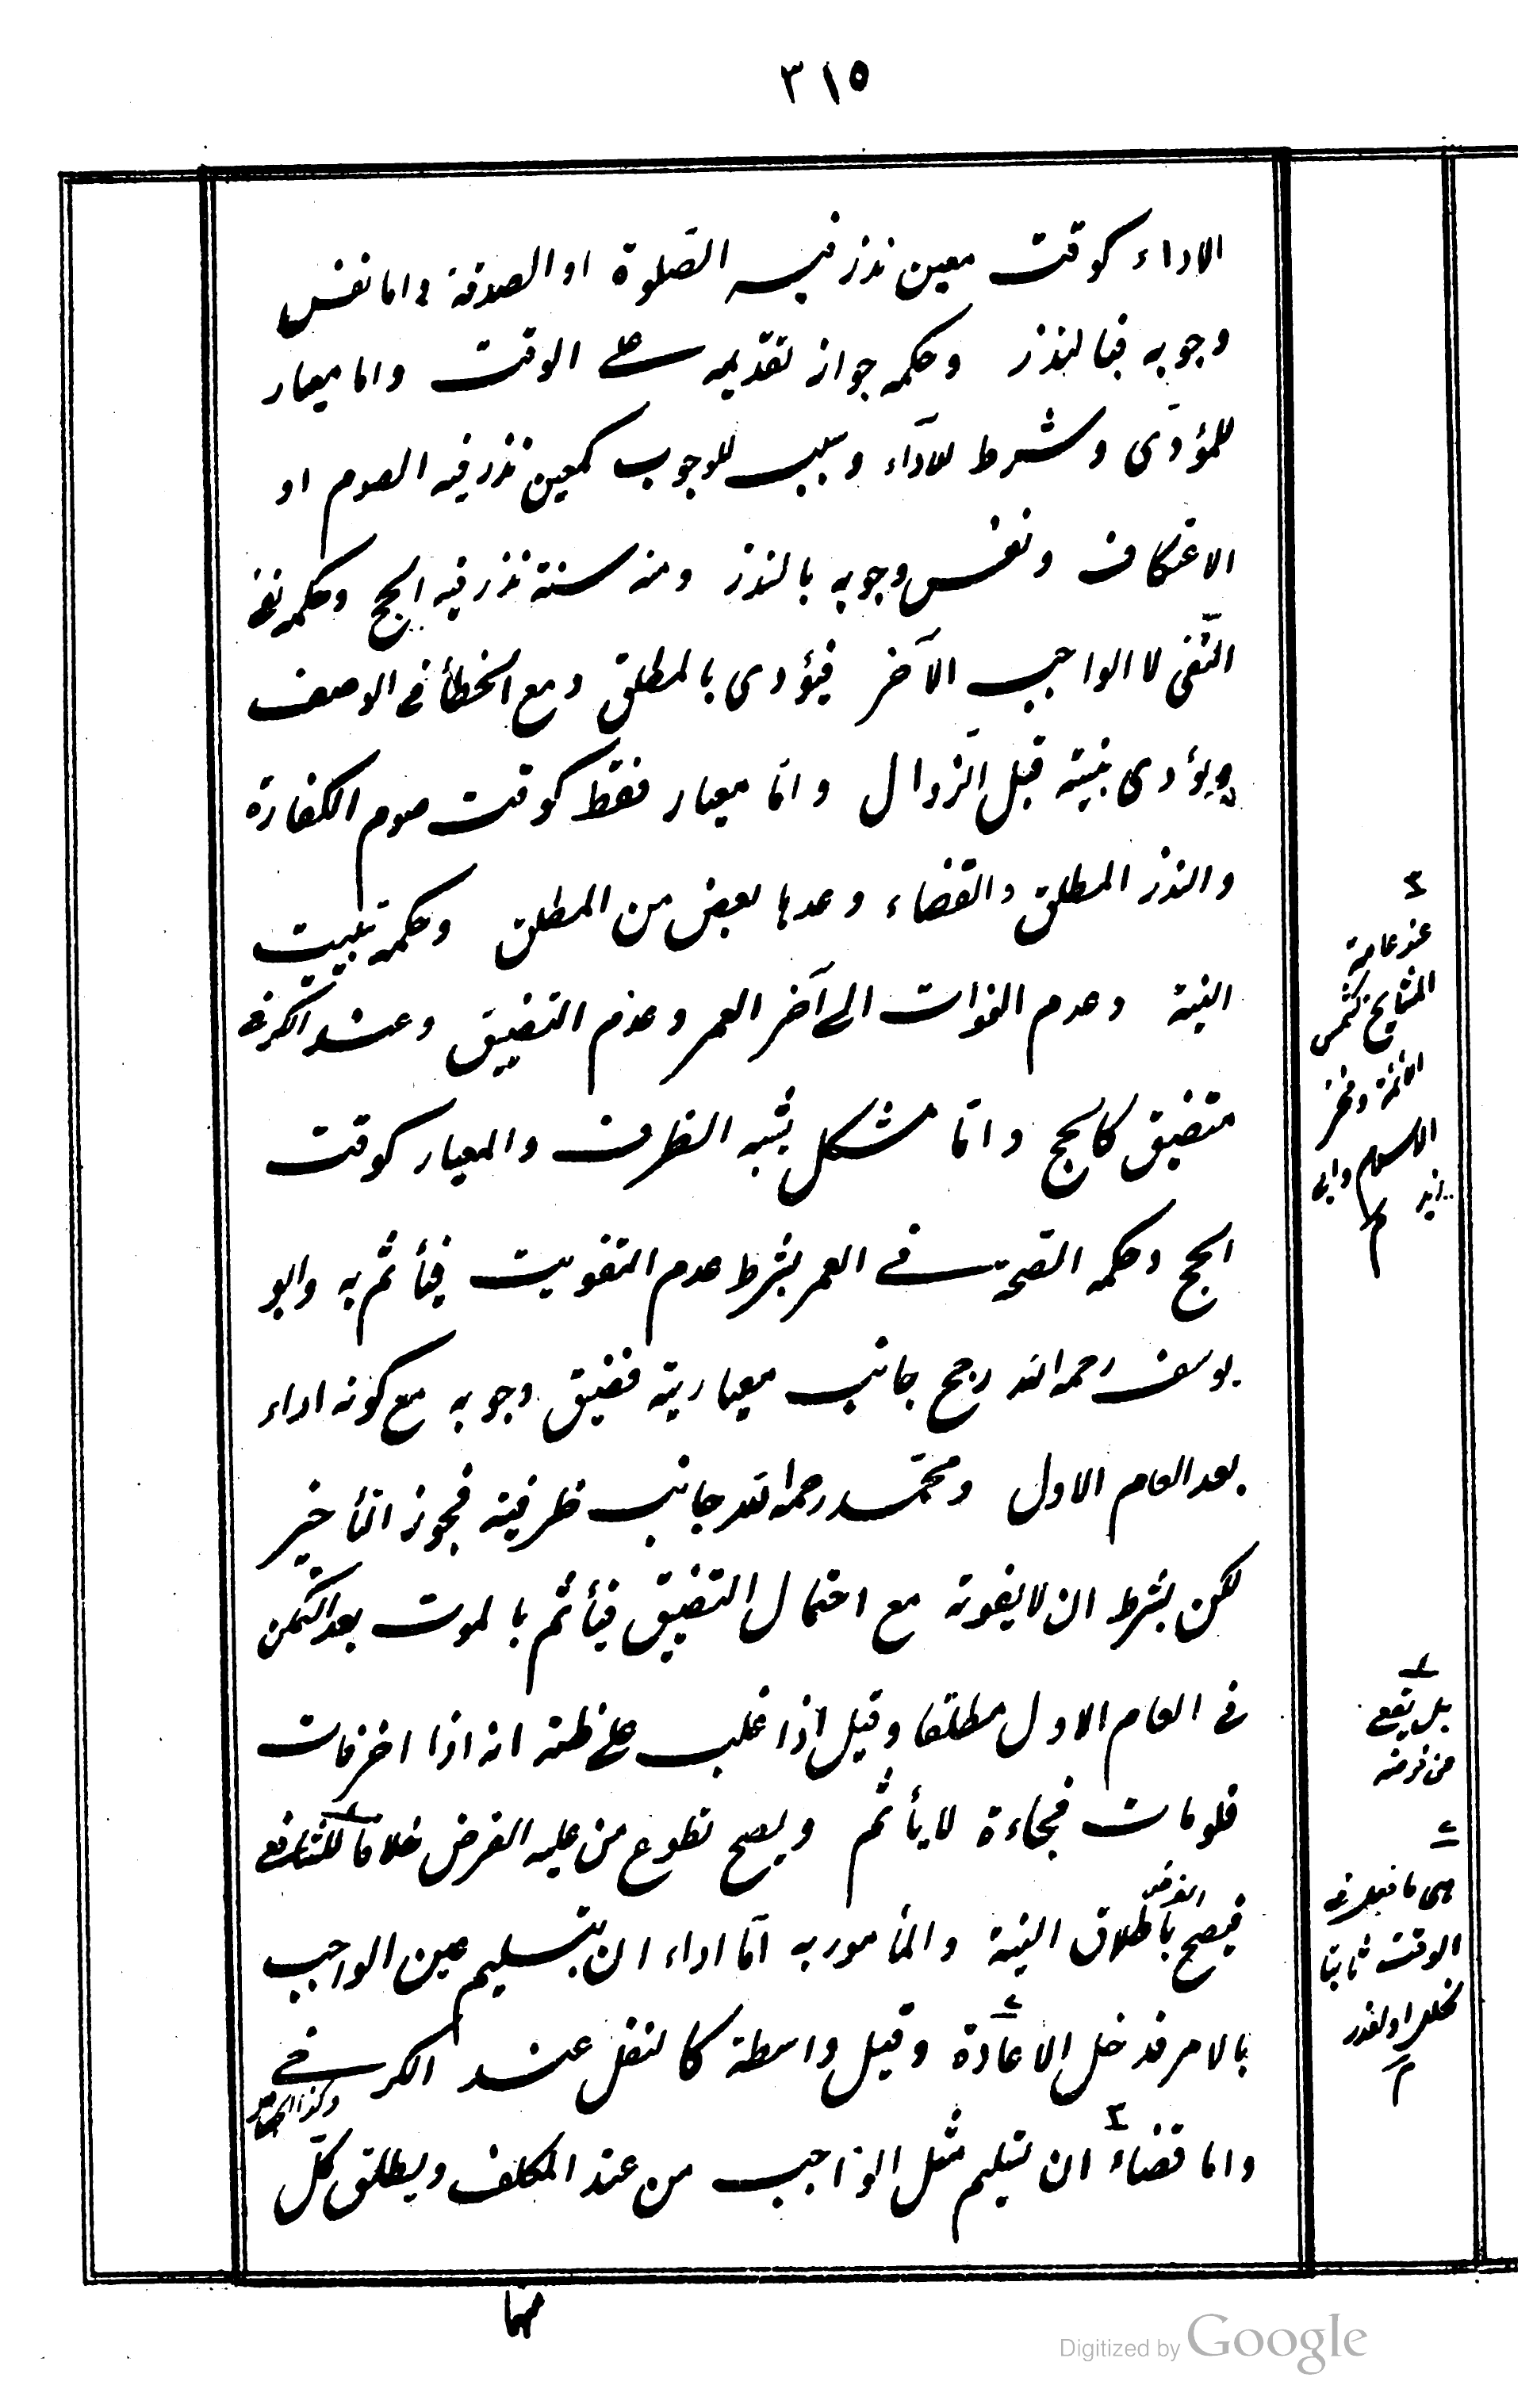 ٣١٥
الاداء كوقت معين نذر فيه الصّلوة او الصدقة و اما نفس
وجوبه فبالنذر وحكمه جواز تقديمه على الوقت واما معيار
للمؤدّى وشرط للاداء وسبب للوجوب كمعين نذر فيه الصوم او
الاعتكاف ونفس وجوبه بالنذر ومنه سنة نذر فيه الحج وحكمه نفى
النّفل لا الواجب الآخر فيؤدى بالمطلق ومع الخطأ فى الوصف
ويؤدى بنيته قبل الزّوال وامّا معيار فقط كوقت صوم الكفارة
والنذر المطلق والقضاء وعدها بعض من المطلق وحكمه تبييت
النية وعدم الفوات الى آخر العمر وعدم التضييق وعند الكرخى
متضيق كالحج وامّا مشكل يشبه الظرف والمعيار كوقت
الحج وحكمه الصّحة فى العمر بشرط عدم التفويت فيأثم به وابو
يوسف رحمه الله رجح جانب معياريته فضيق وجوبه مع كونه اداء
بعد العام الاول ومحمّد رحمه الله جانب ظرفيته فجوز التأخير
لكن بشرط ان لا يفوته مع احتمال التضييق فيأثم بالموت بعد التمكن
فى العام الاول مطلقا وقيل اذا غلب على ظنه انه اذا اخر فات
فلو مات فجاءة لا يأثم ويصح تطوع من عليه الفرض خلافا للشافعى
فيصح الفرض باطلاق النية والمأمور به امّا اداء ان بتسليم عين الواجب
بالامر فدخل الاعادة وقيل واسطة كالنفل عند الكرخى
واما قضاء ان تسليم مثل الواجب من عند المكلف ويطلق كلّ
منهما
٣
عند عامة
المشايخ كشمس
الائمة وفخر
الاسلام وابى
زيد
م
بل يقع
عن فرضه
هى ما فعل فى
الوقت ثانيا
لخلل او لعذر
م
Digitized by Google